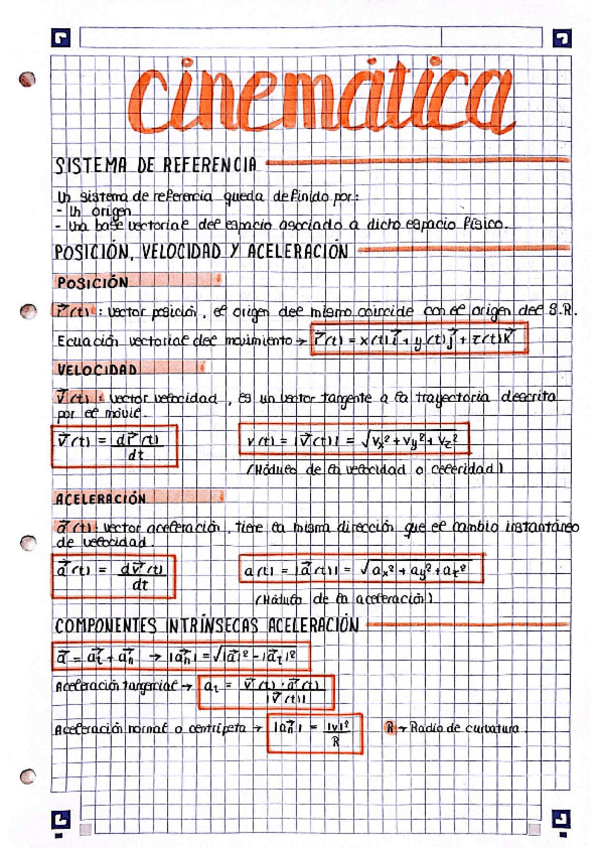 cinemática
SISTEMA DE REFERENCIA
Un sistema de referencia queda definido por:
- Un origen
- Una base vectorial del espacio asociado a dicho espacio físico.
POSICIÓN, VELOCIDAD Y ACELERACIÓN
POSICIÓN
r⃗(t): vector posición, el origen del mismo coincide con el origen del S.R.
Ecuación vectorial del movimiento → r⃗(t) = x(t) i⃗ + y(t) j⃗ + z(t) k⃗
VELOCIDAD
v⃗(t): vector velocidad, es un vector tangente a la trayectoria descrita
por el móvil.
v⃗(t) = dr⃗(t)/dt v(t) = |v⃗(t)| = √(vx² + vy² + vz²)
(Módulo de la velocidad o celeridad)
ACELERACIÓN
a⃗(t): vector aceleración, tiene la misma dirección que el cambio instantáneo
de velocidad.
a⃗(t) = dv⃗(t)/dt a(t) = |a⃗(t)| = √(ax² + ay² + az²)
(Módulo de la aceleración)
COMPONENTES INTRÍNSECAS ACELERACIÓN
a⃗ = a⃗t + a⃗n → |a⃗n| = √(|a⃗|² - |a⃗t|²)
Aceleración tangencial → at = v⃗(t) · a⃗(t)/|v⃗(t)|
Aceleración normal o centrípeta → |a⃗n| = |v|²/R R → Radio de curvatura.